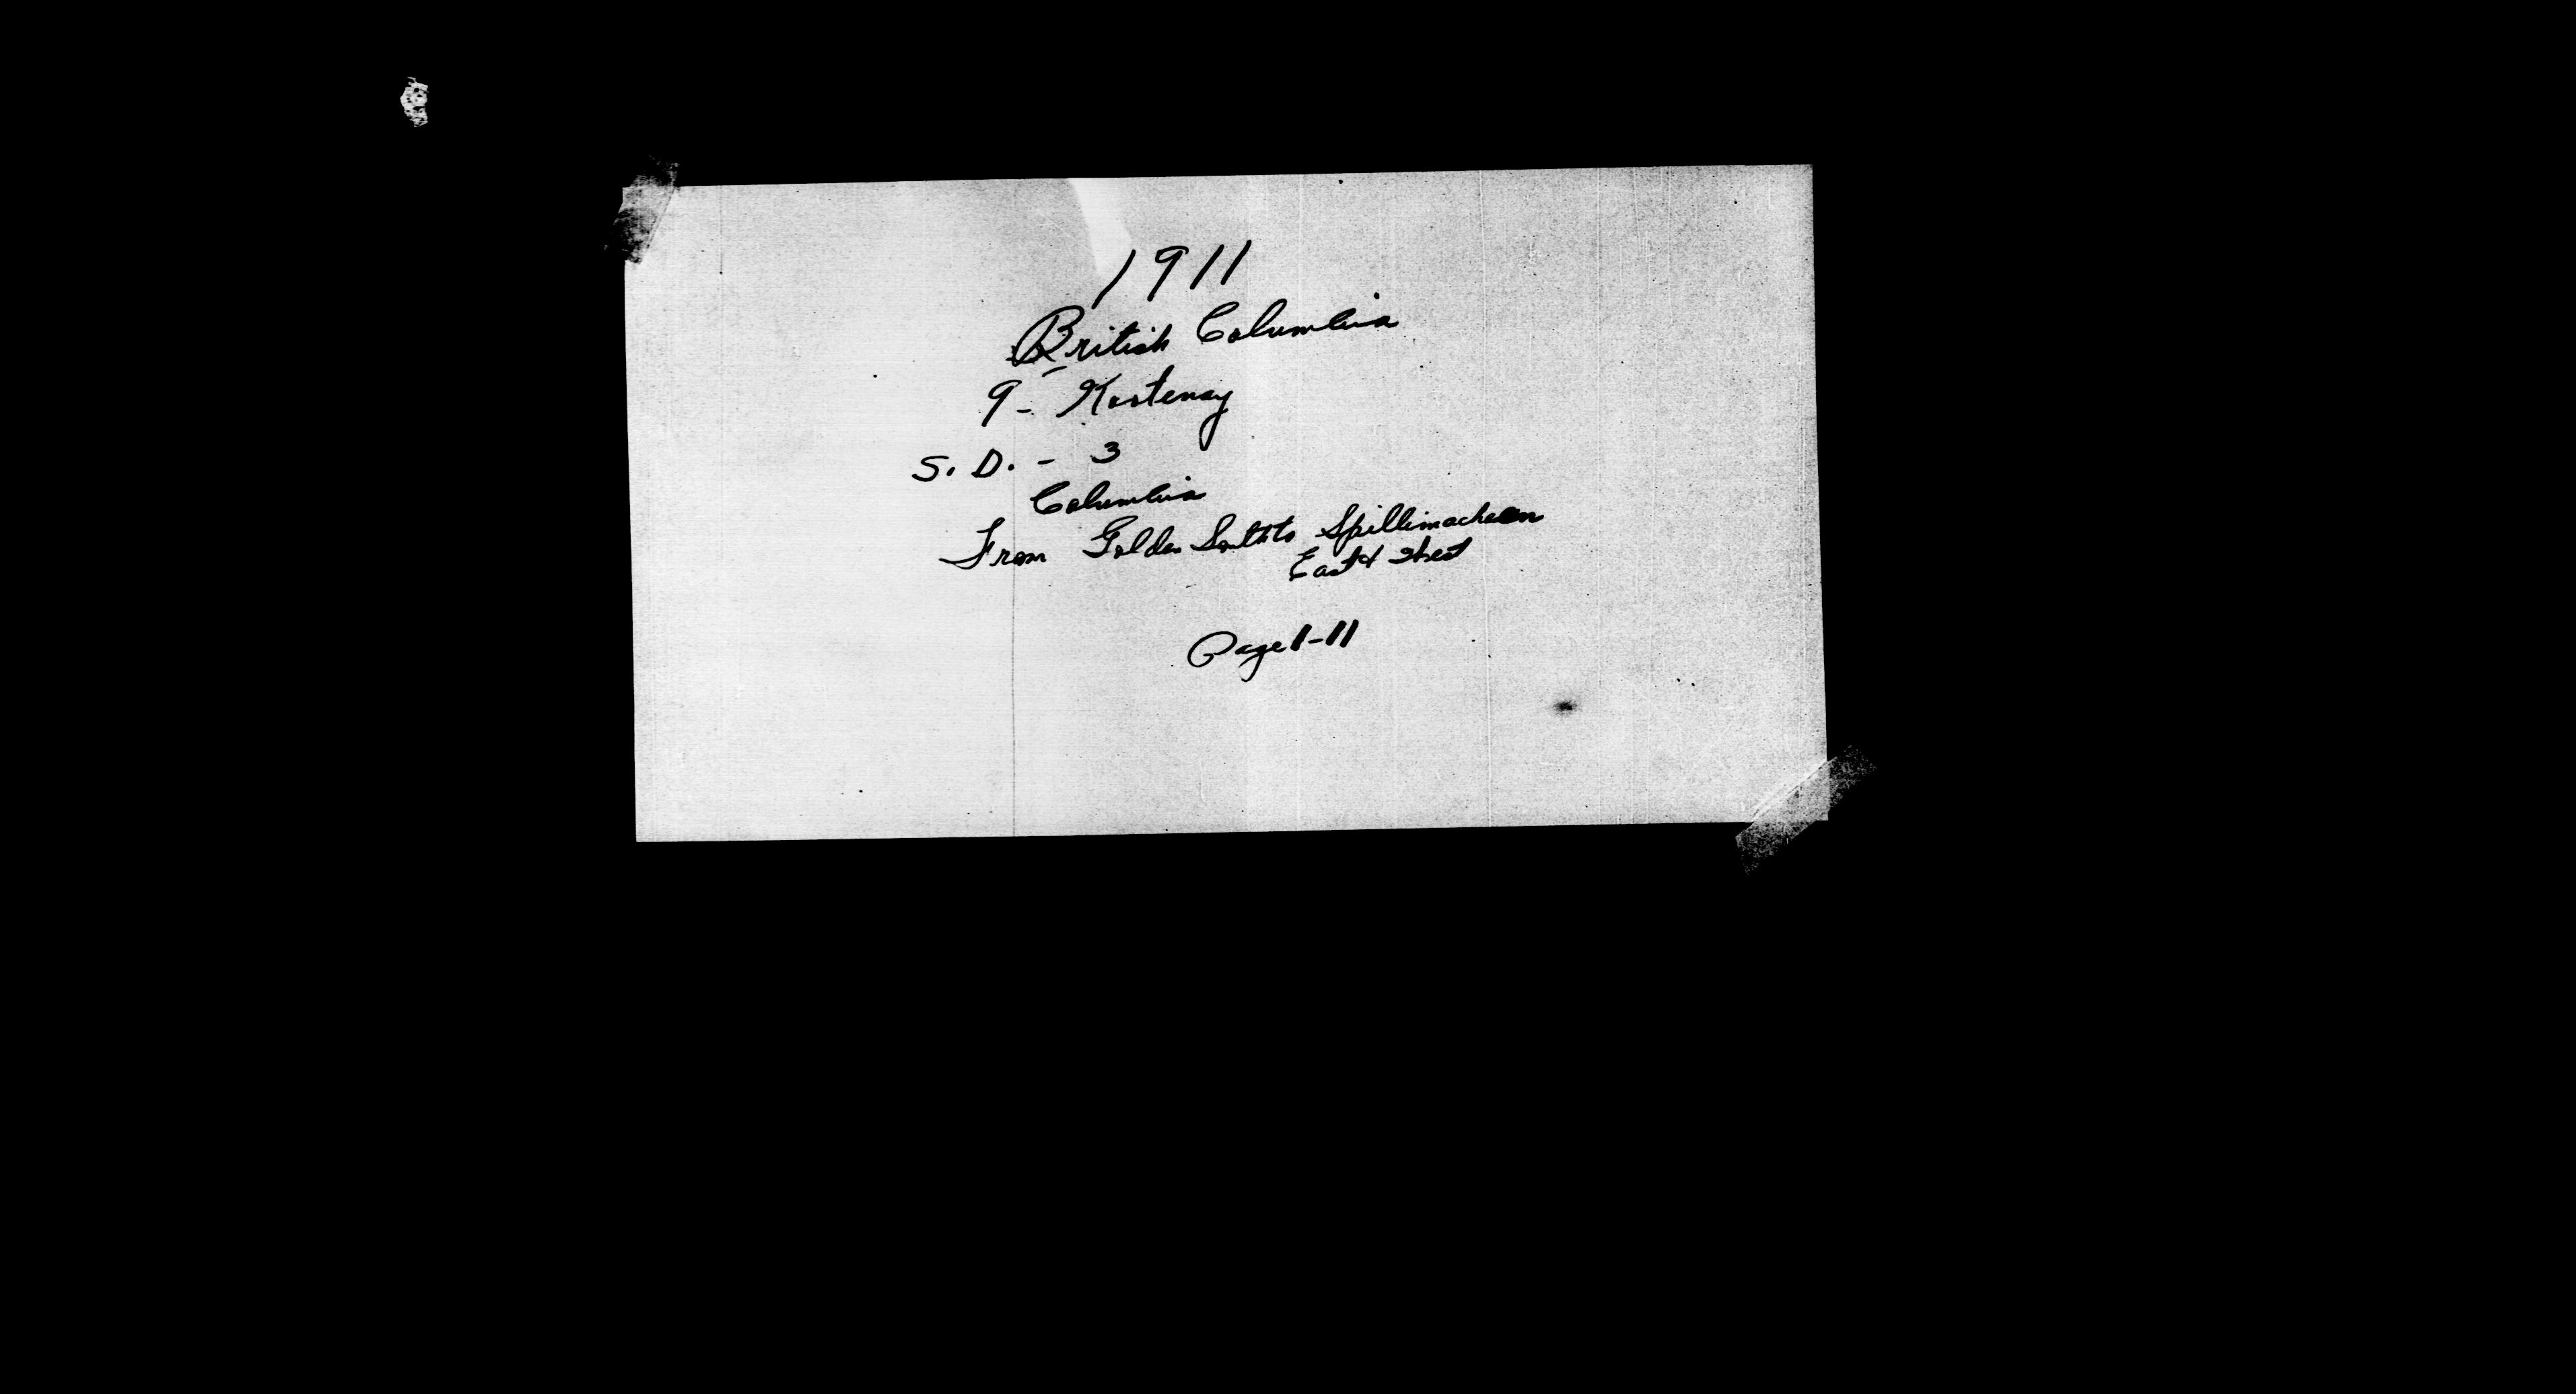 1911
British Columbia
9 - Kootenay
S. D. - 3
Columbia
From Golden South to Spillimacheen
East & West
Page 1-11